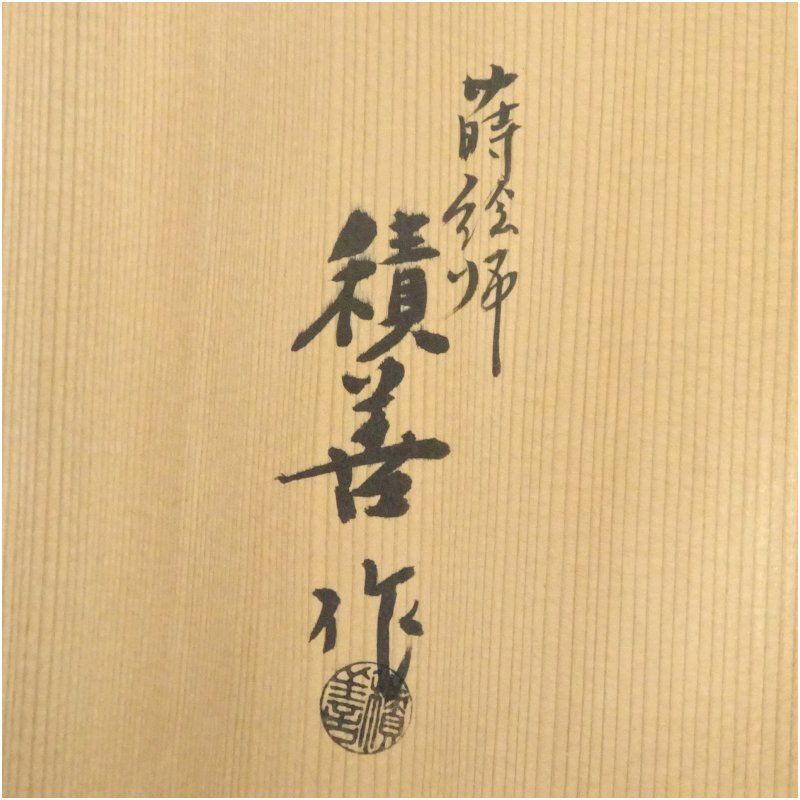 蒔絵師
積善作
積善